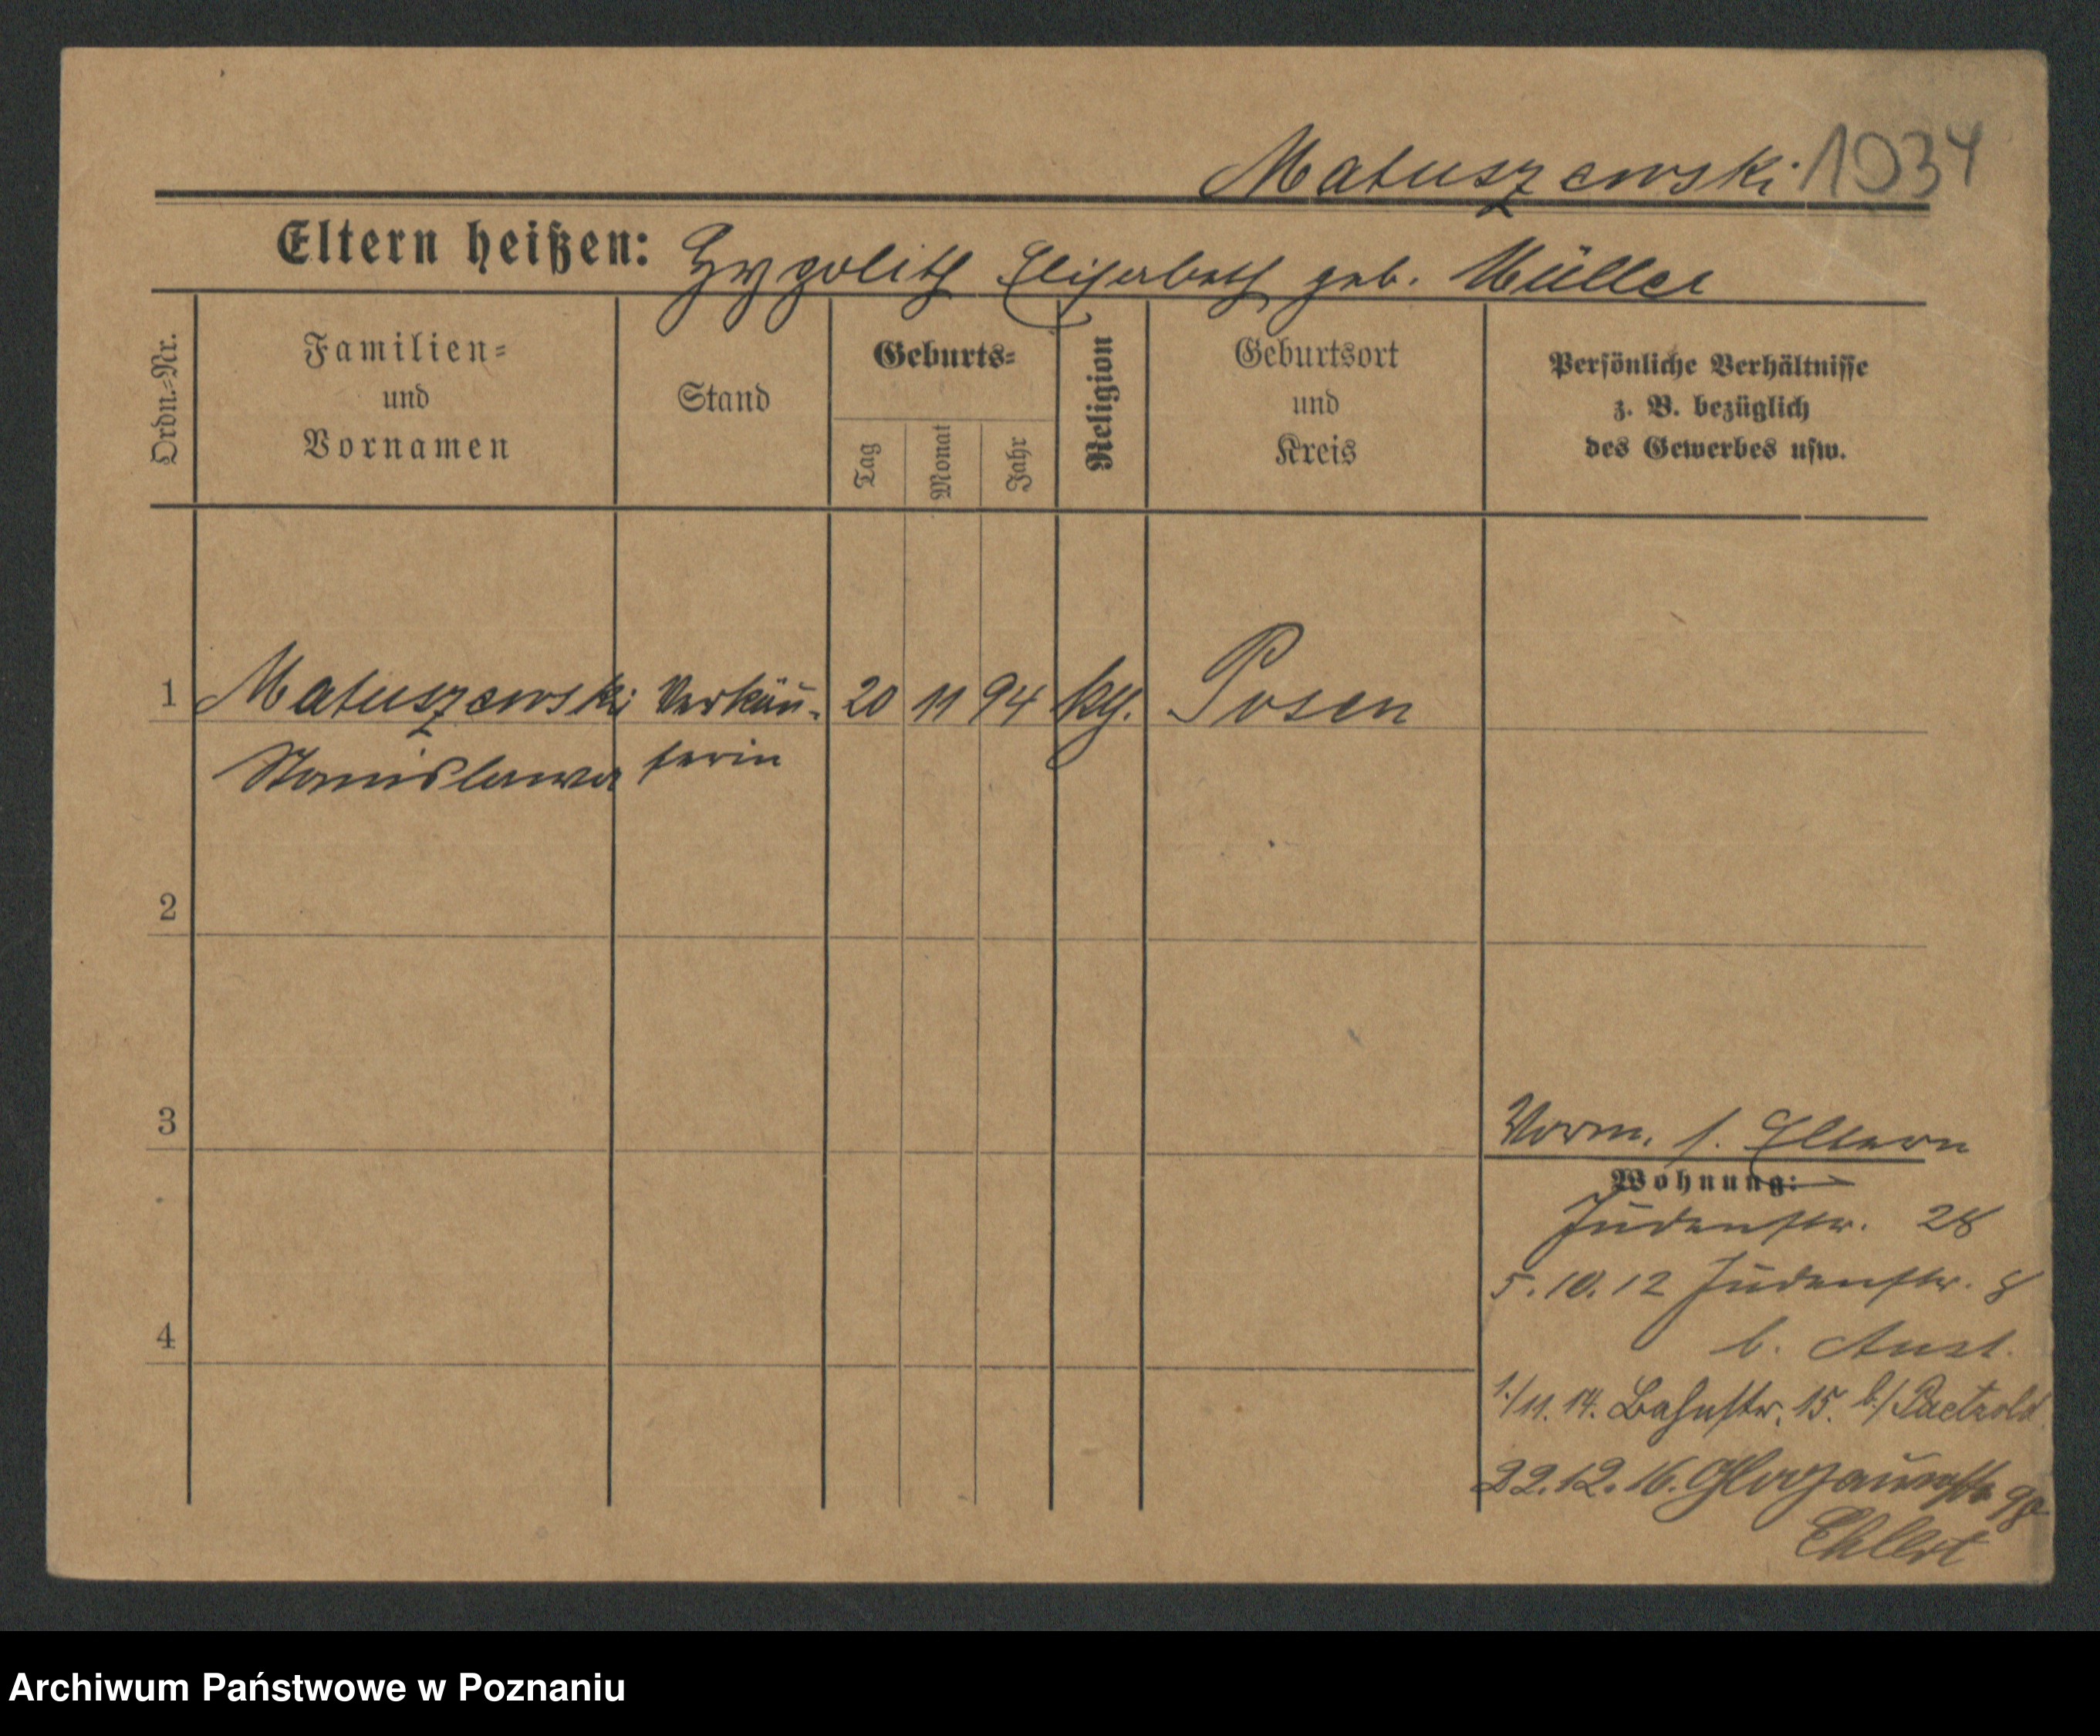 Matuszewski 1034
Eltern heißen: Hypolith Elisabeth geb. Müller
Ordn.=Nr.
Familien=
und
Vornamen
Stand
Geburts=
Tag
Monat
Jahr
Religion
Geburtsort
und
Kreis
Persönliche Verhältnisse
z. B. bezüglich
des Gewerbes usw.
1 Matuszewski Verkäu- 20 11 94 kg. Posen
Stanislawa ferin
2
3
Vorm. s. Eltern
Wohnung:
Judenstr. 28
5.10.12 Judenstr. 8
4
b.
1./11. 14. Bahnstr. 15. b./Paetzold
22.12.16. Glogauerstr
Ehlert
Archiwum Państwowe w Poznaniu